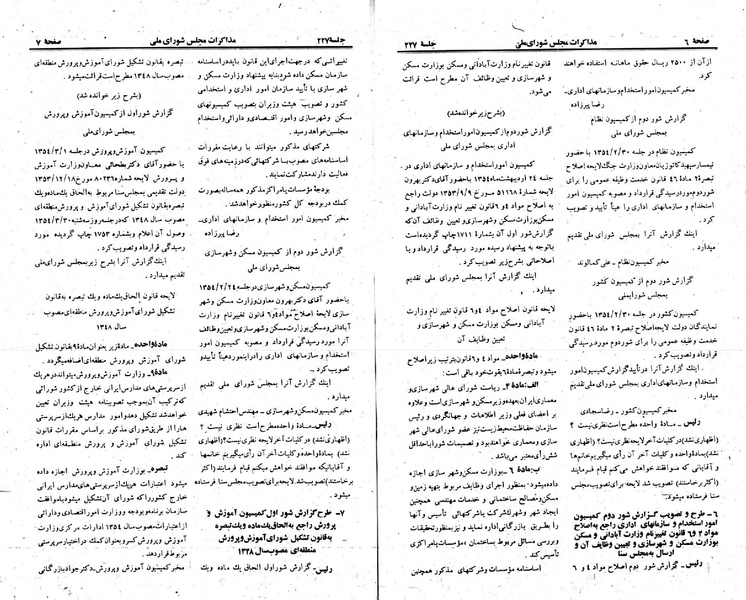 صفحهٔ ۶
مذاکرات مجلس شورای ملی
جلسهٔ ۲۲۷
از آن از ۲۵۰۰ ریال حقوق ماهانه استفاده خواهند
کرد.
مخبر کمیسیون امور استخدام و سازمانهای اداری.
رضا پیرزاده
گزارش شور دوم از کمیسیون نظام
بمجلس شورای ملی
کمیسیون نظام در جلسه ۱۳۵۴/۲/۳۰ با حضور
تیمسار سپهبد کاتوزیان معاون وزارت جنگ لایحه اصلاح
تبصره ۲ ماده ۴۶ قانون خدمت وظیفه عمومی را برای
شور دوم مورد رسیدگی قرار داد و مصوبه کمیسیون امور
استخدام و سازمانهای اداری را عیناً تأیید و تصویب
کرد.
اینک گزارش آنرا بمجلس شورای ملی تقدیم
میدارد.
مخبر کمیسیون نظام ـ علی کمالوند
گزارش شور دوم از کمیسیون کشور
بمجلس شورایملی
کمیسیون کشور در جلسه ۱۳۵۴/۲/۳۰ با حضور
نمایندگان دولت لایحه اصلاح تبصره ۲ ماده ۴۶ قانون
خدمت وظیفه عمومی را برای شور دوم مورد رسیدگی
قرار داد.
اینک گزارش آنرا در تأیید گزارش کمیسیون امور
استخدام و سازمانهای اداری بمجلس شورای ملی تقدیم
میدارد.
مخبر کمیسیون کشور ـ رضا سجادی
رئیس ـ ماده واحده مطرح است نظری نیست؟
(اظهاری نشد) در کلیات آخر لایحه نظری نیست؟ (اظهاری
نشد) بماده واحده و کلیات آخر آن رأی میگیریم خانمها
و آقایانی که موافقند خواهش میکنم قیام فرمایند
(اکثر برخاستند) تصویب شد لایحه برای تصویب بمجلس
سنا فرستاده میشود.
۶ـ طرح و تصویب گزارش شور دوم کمیسیون
امور استخدام و سازمانهای اداری راجع به اصلاح
مواد ۴ و ۶ قانون تغییر نام وزارت آبادانی و مسکن
بوزارت مسکن و شهرسازی و تعیین وظائف آن و
ارسال به مجلس سنا
رئیس ـ گزارش شور دوم اصلاح مواد ۴ و ۶
قانون تغییر نام وزارت آبادانی و مسکن بوزارت مسکن
و شهرسازی و تعیین وظائف آن مطرح است قرائت
میشود.
(بشرح زیر خوانده شد)
گزارش شور دوم از کمیسیون امور استخدام و سازمانهای
اداری بمجلس شورای ملی
کمیسیون امور استخدام و سازمانهای اداری در
جلسه ۲۴ اردیبهشت ماه ۱۳۵۴ با حضور آقای دکتر بهرون
لایحه شمارهٔ ۵۱۱۶۸ مورخ ۱۳۵۳/۹/۹ دولت راجع
به اصلاح مواد ۴ و ۶ قانون تغییر نام وزارت آبادانی و
مسکن بوزارت مسکن و شهرسازی و تعیین وظائف آن که
گزارش شور اول آن بشماره ۱۷۱۱ چاپ گردیده است
با توجه به پیشنهاد رسیده مورد رسیدگی قرار داد و با
اصلاحاتی بشرح زیر تصویب کرد.
اینک گزارش آنرا بمجلس شورای ملی تقدیم
میدارد.
لایحه قانون اصلاح مواد ۴ و ۶ قانون تغییر نام وزارت
آبادانی و مسکن بوزارت مسکن و شهرسازی و
تعیین وظائف آن
مادهٔ واحده ـ مواد ۴ و ۶ قانون بترتیب زیر اصلاح
میشود و تبصره مادهٔ ۶ بقوت خود باقی است:
الف: مادهٔ ۴ ـ ریاست شورای عالی شهرسازی و
معماری ایران بعهده وزیر مسکن و شهرسازی است و علاوه
بر اعضای فعلی وزیر اطلاعات و جهانگردی و رئیس
سازمان حفاظت محیط زیست نیز عضو شورای عالی شهر
سازی و معماری خواهند بود و تصمیمات شورا با حداقل
شش رأی معتبر می باشد.
ب: مادهٔ ۶ ـ بوزارت مسکن و شهرسازی اجازه
داده میشود بمنظور اجرای وظایف مربوط به تهیه زمین و
مسکن و مصالح ساختمانی و خدمات مهندسی همچنین
ایجاد شهر و شهرک شرکت یا شرکتهائی تأسیس و آنها
را بطریق بازرگانی اداره نماید و نیز بمنظور تحقیقات
و بررسی مسائل مربوط بساختمان، مؤسسات یا مراکزی
تأسیس کند.
اساسنامه مؤسسات و شرکتهای مذکور همچنین
جلسهٔ ۲۲۷
مذاکرات مجلس شورای ملی
صفحهٔ ۷
تغییراتی که در جهت اجرای این قانون باید در اساسنامه
سازمان مسکن داده شود بنا به پیشنهاد وزارت مسکن و
شهرسازی با تأیید سازمان امور اداری و استخدامی
کشور و تصویب هیئت وزیران بتصویب کمیسیونهای
مسکن و شهرسازی و امور اقتصادی و دارائی و استخدام
مجلسین خواهد رسید.
شرکتهای مذکور میتوانند با رعایت مقررات
اساسنامه های مصوب با شرکتهائی که در زمینه های فوق
فعالیت دارند مشارکت نمایند.
بودجهٔ مؤسسات یا مراکز مذکور همه ساله بصورت
کمک در بودجه کل کشور منظور خواهد شد.
مخبر کمیسیون امور استخدام و سازمانهای اداری.
رضا پیرزاده
گزارش شور دوم از کمیسیون مسکن و شهرسازی
بمجلس شورای ملی
کمیسیون مسکن و شهرسازی در جلسه ۱۳۵۴/۲/۲۴
با حضور آقای دکتر بهرون معاون وزارت مسکن و شهر
سازی لایحه اصلاح مواد ۴ و ۶ قانون تغییر نام وزارت
آبادانی و مسکن بوزارت مسکن و شهرسازی و تعیین وظائف
آن را برای شور دوم رسیدگی قرار داد و مصوبه کمیسیون امور
استخدام و سازمانهای اداری را در این مورد عیناً تأیید و
تصویب کرد.
اینک گزارش آنرا بمجلس شورای ملی تقدیم
میدارد.
مخبر کمیسیون مسکن و شهرسازی ـ مهندس احتشام شهیدی
رئیس ـ ماده واحده مطرح است نظری نیست؟
(اظهاری نشد) در کلیات آخر لایحه نظری نیست؟ (اظهاری
نشد) بماده واحده و کلیات آخر آن رأی میگیریم خانمها
و آقایانیکه موافقند خواهش میکنم قیام فرمایند (اکثر
برخاستند) تصویب شد لایحه برای تصویب بمجلس سنا فرستاده
میشود.
۷ـ طرح گزارش شور اول کمیسیون آموزش و
پرورش راجع به الحاق یک ماده و یک تبصره
به قانون تشکیل شورای آموزش و پرورش
منطقه ای مصوب سال ۱۳۴۸
رئیس ـ گزارش شور اول الحاق یک ماده و یک
تبصره بقانون تشکیل شورای آموزش و پرورش منطقه ای
مصوب سال ۱۳۴۸ مطرح است قرائت میشود.
(بشرح زیر خوانده شد)
گزارش شور اول از کمیسیون آموزش و پرورش
بمجلس شورای ملی
کمیسیون آموزش و پرورش در جلسه ۱۳۵۴/۳/۱
با حضور آقای دکتر بطحائی معاون وزارت آموزش
و پرورش لایحه شماره ۸۰۲۳۶ مورخ ۱۳۵۳/۱۲/۱۸
دولت تقدیمی بمجلس سنا مربوط به الحاق یک ماده و یک
تبصره بقانون تشکیل شورای آموزش و پرورش منطقه ای
مصوب سال ۱۳۴۸ که در جلسه روز سه شنبه ۱۳۵۴/۲/۳۰
وصول آن اعلام و بشماره ۱۷۵۳ چاپ گردیده مورد
رسیدگی قرار داد و تصویب کرد.
اینک گزارش آنرا بشرح زیر بمجلس شورای ملی
تقدیم میدارد.
لایحه قانون الحاق یک ماده و یک تبصره به قانون
تشکیل شورای آموزش و پرورش منطقه ای مصوب
سال ۱۳۴۸
مادهٔ واحده ـ ماده زیر بعنوان مادهٔ ۹ بقانون تشکیل
شورای آموزش و پرورش منطقه ای اضافه میگردد.
مادهٔ ۹ـ وزارت آموزش و پرورش میتواند در هر یک
از سرپرستی های مدارس ایرانی خارج از کشور شورائی
که ترکیب آن بموجب تصویبنامه هیئت وزیران تعیین
خواهد شد تشکیل دهد و امور مدارس هر یک از سرپرستی
ها را از طریق شورای مذکور بر اساس مقررات قانون
تشکیل شورای آموزش و پرورش منطقه ای اداره
نماید.
تبصره ـ بوزارت آموزش و پرورش اجازه داده
میشود اعتبارات هر یک از سرپرستی های مدارس ایرانی
خارج کشور را که شورای آن تشکیل میشود با موافقت
سازمان برنامه و بودجه و وزارت امور اقتصادی و دارائی
از اعتبارات مصوب سال ۱۳۵۴ ادارات مرکزی وزارت
آموزش و پرورش کسر و بعنوان کمک در اختیار سرپرستی
مربوط قرار دهد.
مخبر کمیسیون آموزش و پرورش ـ دکتر جواد بازرگانی